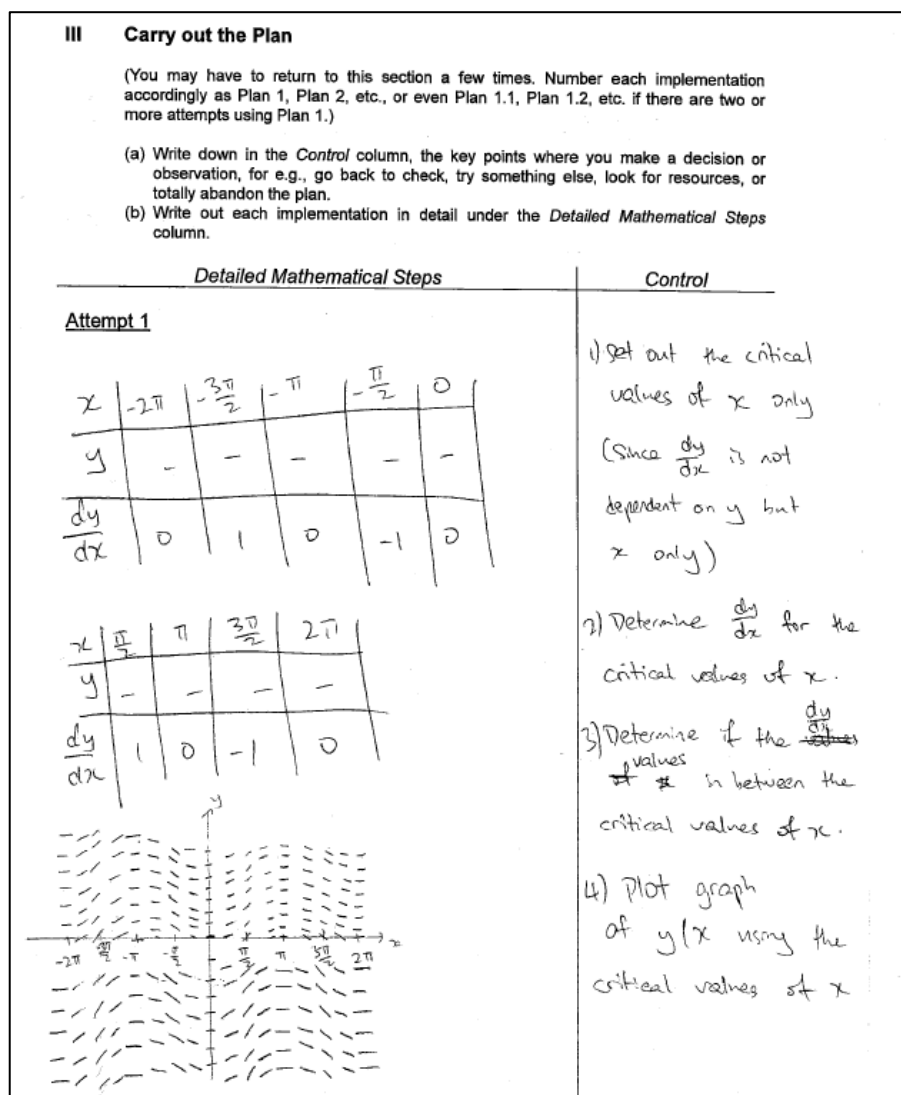 III Carry out the Plan
(You may have to return to this section a few times. Number each implementation
accordingly as Plan 1, Plan 2, etc., or even Plan 1.1, Plan 1.2, etc. if there are two or
more attempts using Plan 1.)
(a) Write down in the Control column, the key points where you make a decision or
observation, for e.g., go back to check, try something else, look for resources, or
totally abandon the plan.
(b) Write out each implementation in detail under the Detailed Mathematical Steps
column.
Detailed Mathematical Steps Control
Attempt 1
x | -2π | -3π/2 | -π | -π/2 | 0
y | - | - | - | - | -
dy/dx | 0 | 1 | 0 | -1 | 0
x | π/2 | π | 3π/2 | 2π
y | - | - | - | -
dy/dx | 1 | 0 | -1 | 0
y
-2π -3π/2 -π -π/2 π/2 π 3π/2 2π x
1) Set out the critical
values of x only
(Since dy/dx is not
dependent on y but
x only)
2) Determine dy/dx for the
critical values of x.
3) Determine if the dy/dx
values in between the
critical values of x.
4) Plot graph
of y/x using the
critical values of x